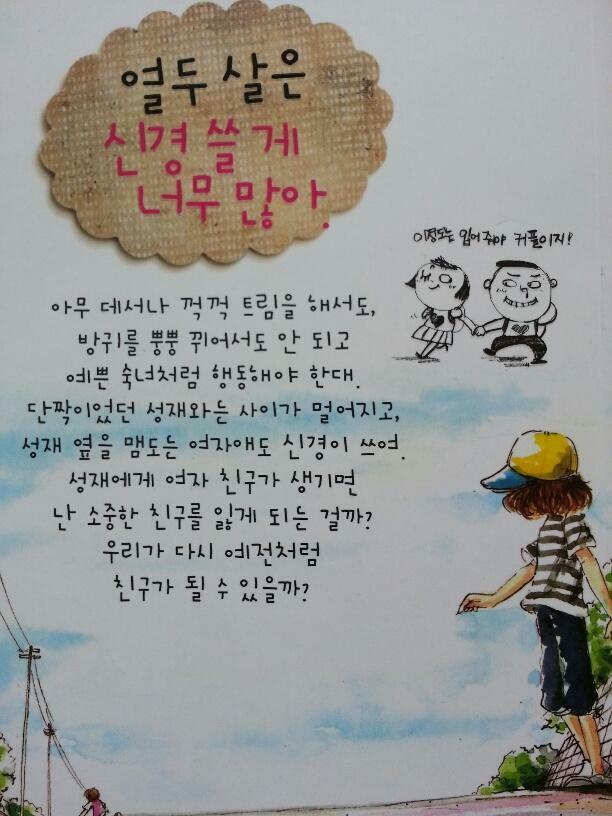 열두 살은
신경 쓸 게
너무 많아.
이정도는 입어줘야 커플이지!
아무 데서나 꺽꺽 트림을 해서도,
방귀를 뿡뿡 뀌어서도 안 되고
예쁜 숙녀처럼 행동해야 한대.
단짝이었던 성재와는 사이가 멀어지고,
성재 옆을 맴도는 여자애도 신경이 쓰여.
성재에게 여자 친구가 생기면
난 소중한 친구를 잃게 되는 걸까?
우리가 다시 예전처럼
친구가 될 수 있을까?